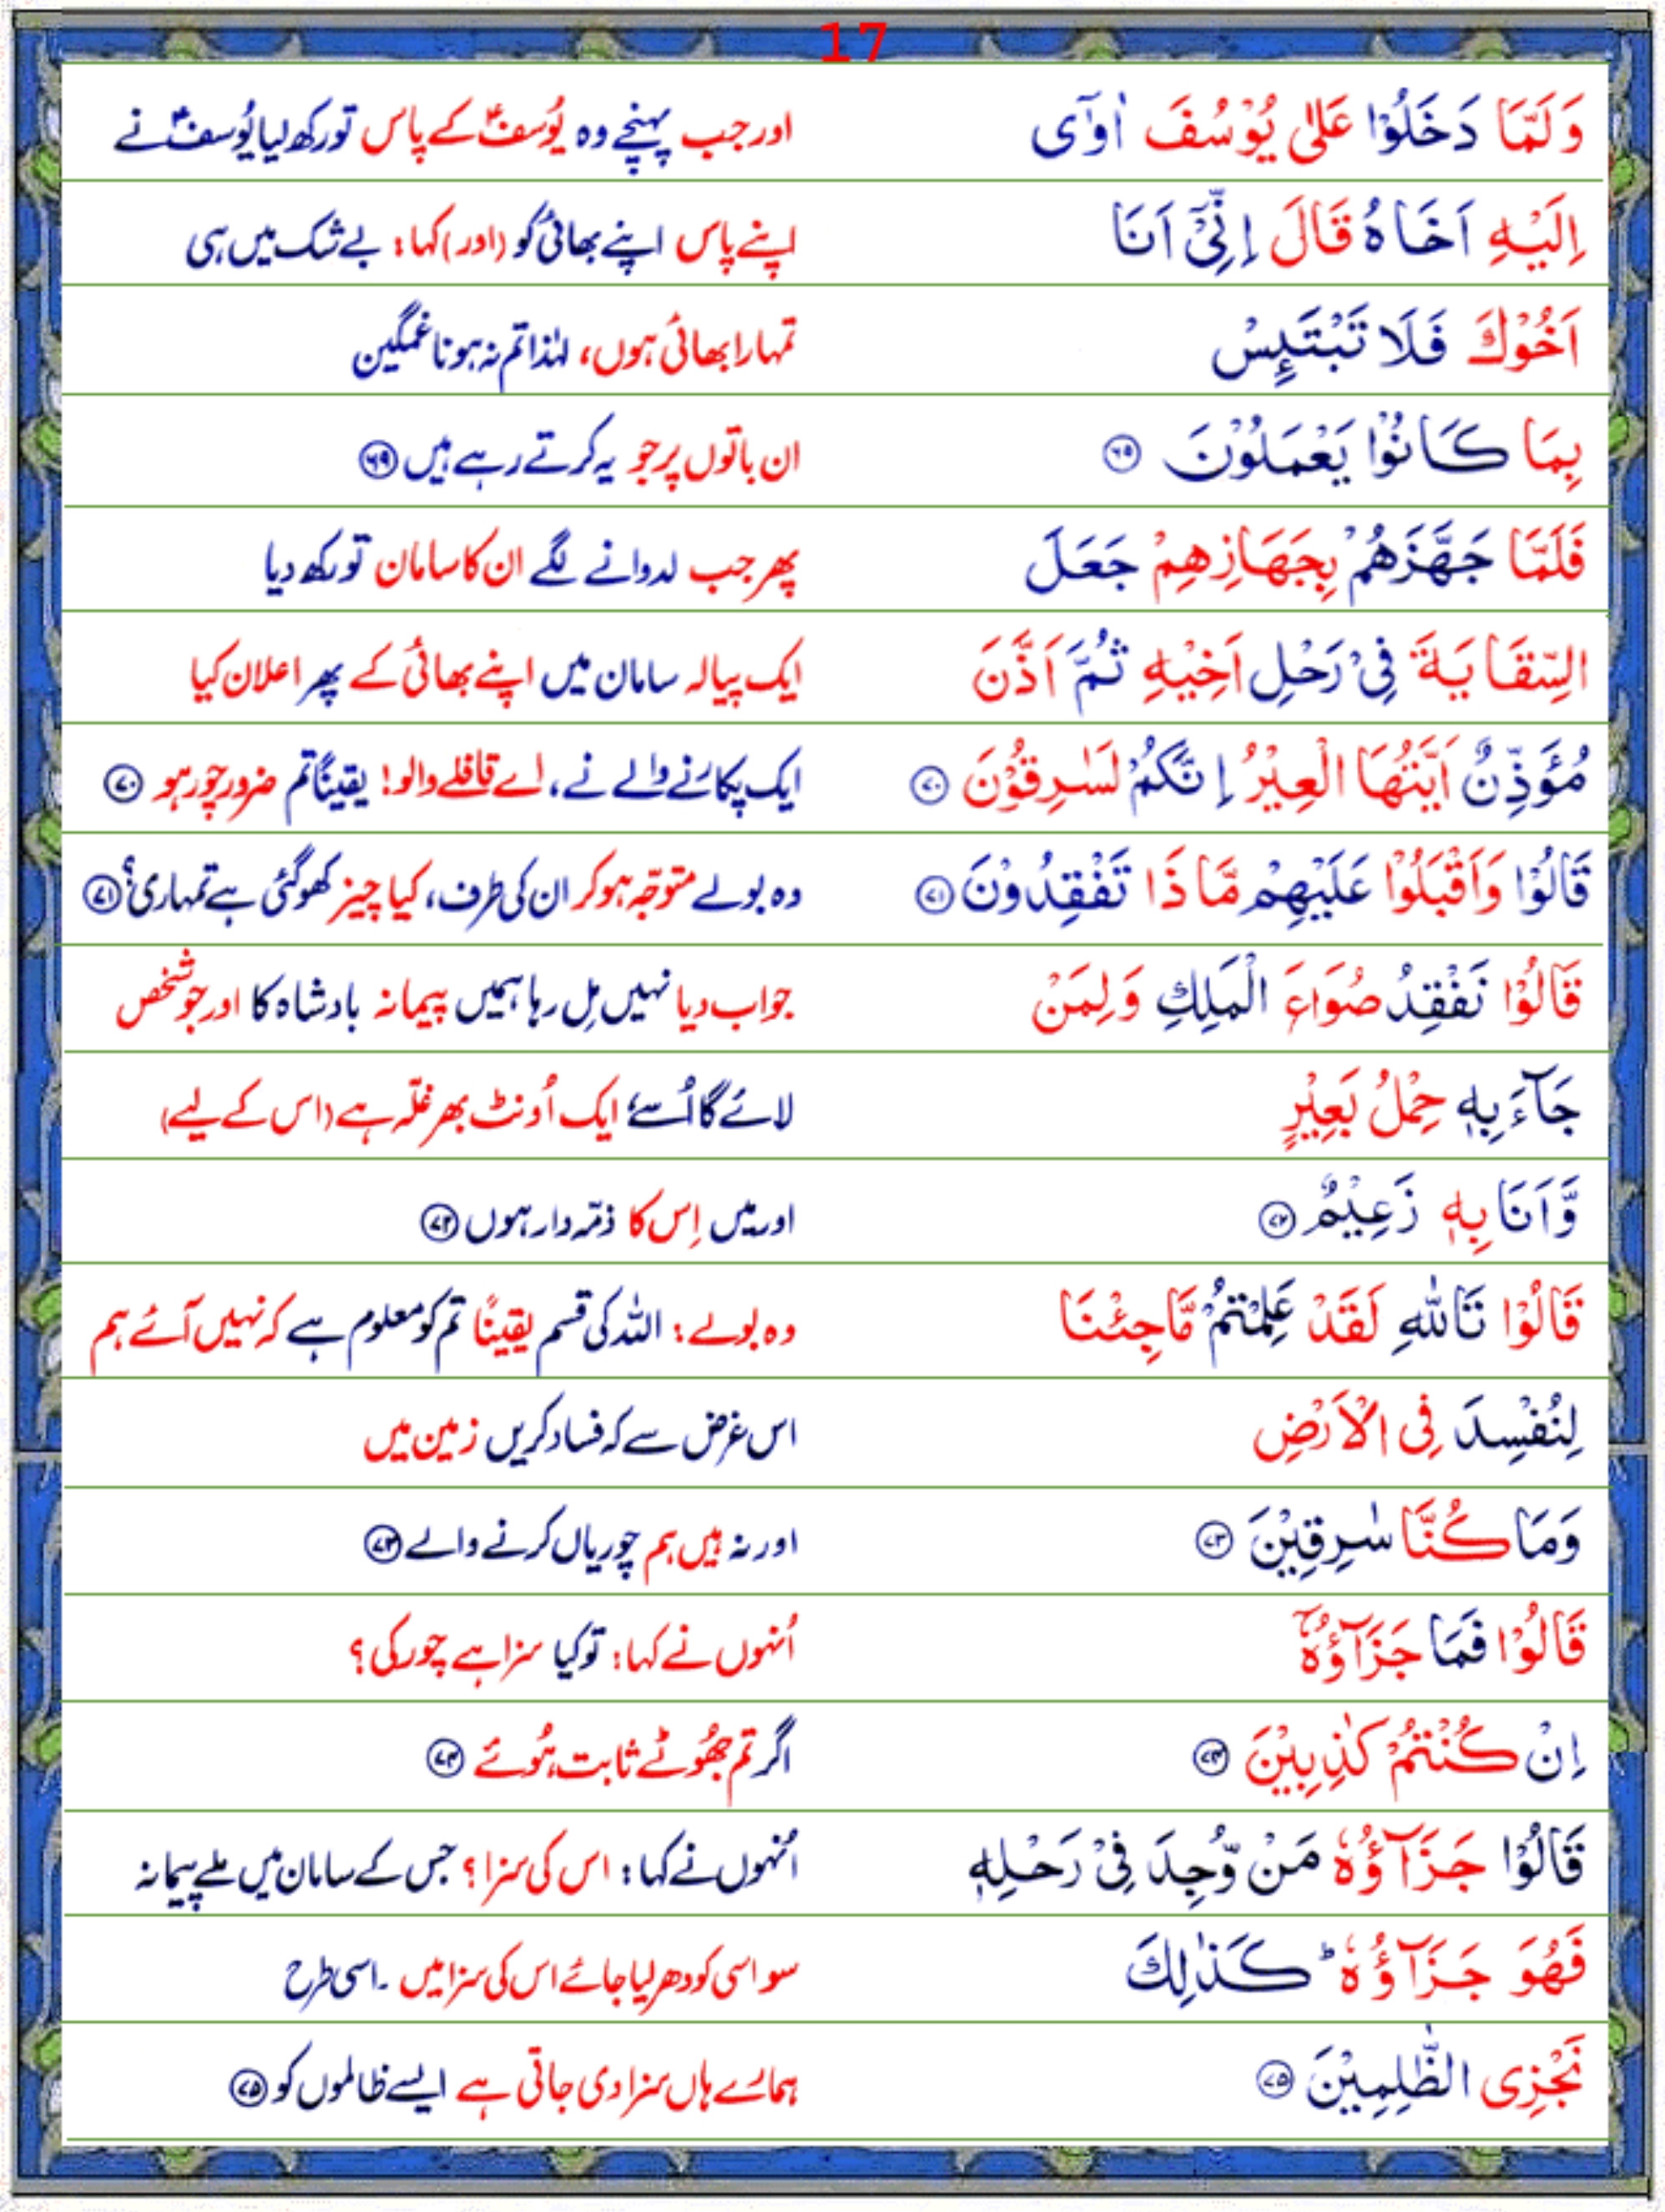 17
وَلَمَّا دَخَلُوْا عَلٰى يُوْسُفَ اٰوٰٓى اور جب پہنچے وہ یُوسفؑ کے پاس تو رکھ لیا یُوسفؑ نے
اِلَيْهِ اَخَاهُ قَالَ اِنِّىْۤ اَنَا اپنے پاس اپنے بھائی کو (اور) کہا: بے شک میں ہی
اَخُوْكَ فَلَا تَبْتَئِسْ تمہارا بھائی ہوں، لہٰذا تم نہ ہونا غمگین
بِمَا كَانُوْا يَعْمَلُوْنَ ۶۵ ان باتوں پر جو یہ کرتے رہے ہیں ۶۹
فَلَمَّا جَهَّزَهُمْ بِجَهَازِهِمْ جَعَلَ پھر جب لدوانے لگے ان کا سامان تو رکھ دیا
السِّقَايَةَ فِىْ رَحْلِ اَخِيْهِ ثُمَّ اَذَّنَ ایک پیالہ سامان میں اپنے بھائی کے پھر اعلان کیا
مُؤَذِّنٌ اَيَّتُهَا الْعِيْرُ اِنَّكُمْ لَسٰرِقُوْنَ ۷۰ ایک پکارنے والے نے، اے قافلے والو! یقیناً تم ضرور چور ہو ۷۰
قَالُوْا وَاَقْبَلُوْا عَلَيْهِمْ مَّاذَا تَفْقِدُوْنَ ۷۱ وہ بولے متوجّہ ہو کر ان کی طرف، کیا چیز کھو گئی ہے تمہاری؟ ۷۱
قَالُوْا نَفْقِدُ صُوَاعَ الْمَلِكِ وَلِمَنْ جواب دیا نہیں مِل رہا ہمیں پیمانہ بادشاہ کا اور جو شخص
جَآءَ بِهٖ حِمْلُ بَعِيْرٍ لائے گا اُسے ایک اُونٹ بھر غلّہ ہے (اس کے لیے)
وَّاَنَا بِهٖ زَعِيْمٌ ۷۲ اور میں اِس کا ذمّہ دار ہوں ۷۲
قَالُوْا تَاللّٰهِ لَقَدْ عَلِمْتُمْ مَّا جِئْنَا وہ بولے: اللہ کی قسم یقیناً تم کو معلوم ہے کہ نہیں آئے ہم
لِنُفْسِدَ فِى الْاَرْضِ اس غرض سے کہ فساد کریں زمین میں
وَمَا كُنَّا سٰرِقِيْنَ ۷۳ اور نہ ہیں ہم چوریاں کرنے والے ۷۳
قَالُوْا فَمَا جَزَآؤُهٗۤ اُنہوں نے کہا: تو کیا سزا ہے چور کی؟
اِنْ كُنْتُمْ كٰذِبِيْنَ ۷۴ اگر تم جھُوٹے ثابت ہُوئے ۷۴
قَالُوْا جَزَآؤُهٗ مَنْ وُّجِدَ فِىْ رَحْلِهٖ اُنہوں نے کہا: اس کی سزا؟ جس کے سامان میں ملے پیمانہ
فَهُوَ جَزَآؤُهٗ ؕ كَذٰلِكَ سو اسی کو دھر لیا جائے اس کی سزا میں ۔اسی طرح
نَجْزِى الظّٰلِمِيْنَ ۷۵ ہمارے ہاں سزا دی جاتی ہے ایسے ظالموں کو ۷۵